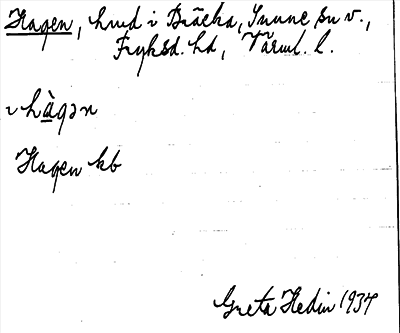 Hagen, hmd i Bräcka, Sunne sn v.,
Fryksd. hd, Värml. l.
i hàgən
Hagen kb
Greta Hedin 1937